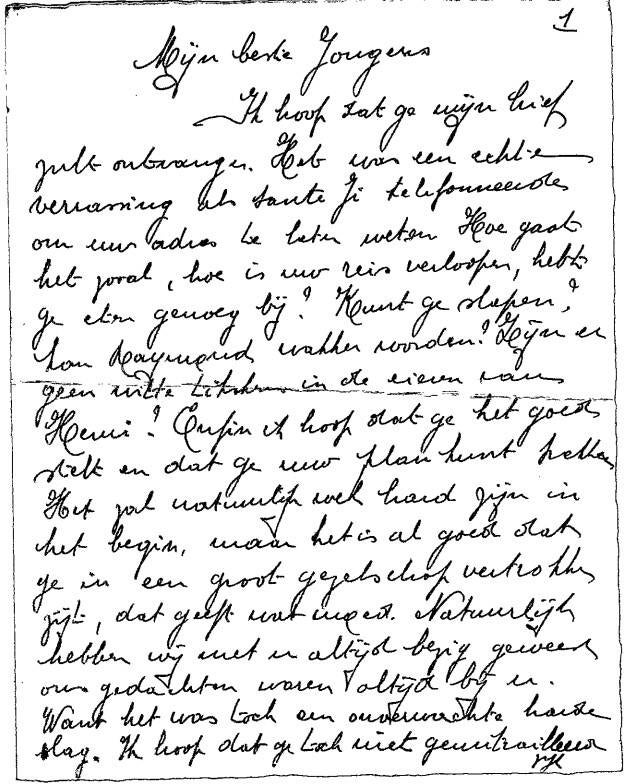 1
Mijn beste Jongens
Ik hoop dat ge mijn brief
zult ontvangen. Het was een echte
verrassing als tante Ji telefonneerde
om uw adres te laten weten Hoe gaat
het zoal, hoe is uw reis verlopen, hebt
ge eten genoeg bij? Kunt ge slapen?
kan Raymond wakker worden? Zijn er
geen witte in de eieren van
Henri? Enfin ik hoop dat ge het goed
stelt en dat ge uw plan kunt trekken
Het zal natuurlijk wel hard zijn in
het begin, maar het is al goed dat
ge in een groot gezelschap vertrokken
zijt, dat geeft wat moed. Natuurlijk
hebben wij met u altijd bezig geweest
ons gedachten waren altijd bij u.
Want het was toch een onverwachte harde
slag. Ik hoop dat ge toch niet gemitrailleerd